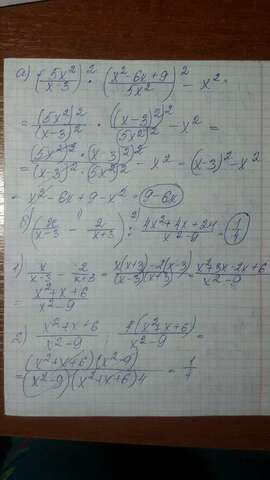 а) (5x²/(x-3))² · ((x²-6x+9)/5x²)² - x² =
= (5x²)²/(x-3)² · ((x-3)²)²/(5x²)² - x² =
= (5x²)² · ((x-3)²)²/((x-3)² · (5x²)²) - x² = (x-3)² - x²
= x² - 6x + 9 - x² = 9-6x
б) (x/(x-3) - 2/(x+3)) : (4x²+4x+24)/(x²-9) = 1/4
1) x/(x-3) - 2/(x+3) = (x(x+3)-2(x-3))/((x-3)(x+3)) = (x²+3x-2x+6)/(x²-9)
= (x²+x+6)/(x²-9)
2) (x²+x+6)/(x²-9) : 4(x²+x+6)/(x²-9) =
= (x²+x+6)(x²-9)/((x²-9)(x²+x+6)4) = 1/4